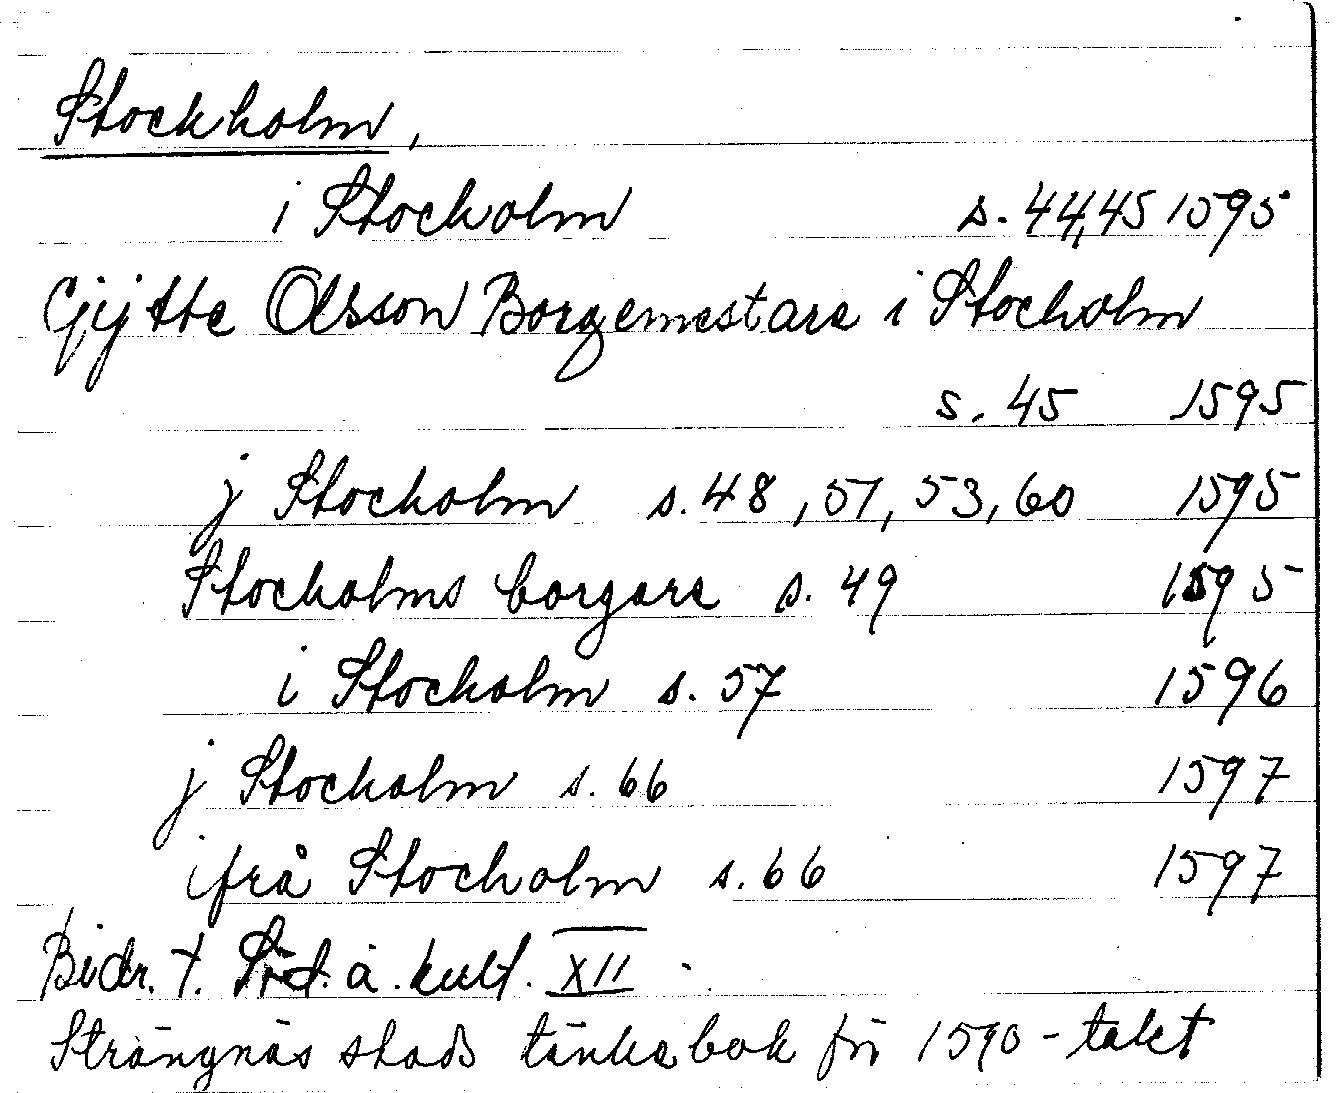 Stockholm,
i Stocholm s. 44,45 1595
Gijtte Olsson Borgemestare i Stocholm
s. 45 1595
j Stocholm s. 48, 51, 53, 60 1595
Stocholms borgare s. 49 1595
i Stocholm s. 57 1596
j Stocholm s. 66 1597
ifrå Stocholm s. 66 1597
Bidr. t. Söd. ä. kult. XII
Strängnäs stads tänkebok för 1590-talet